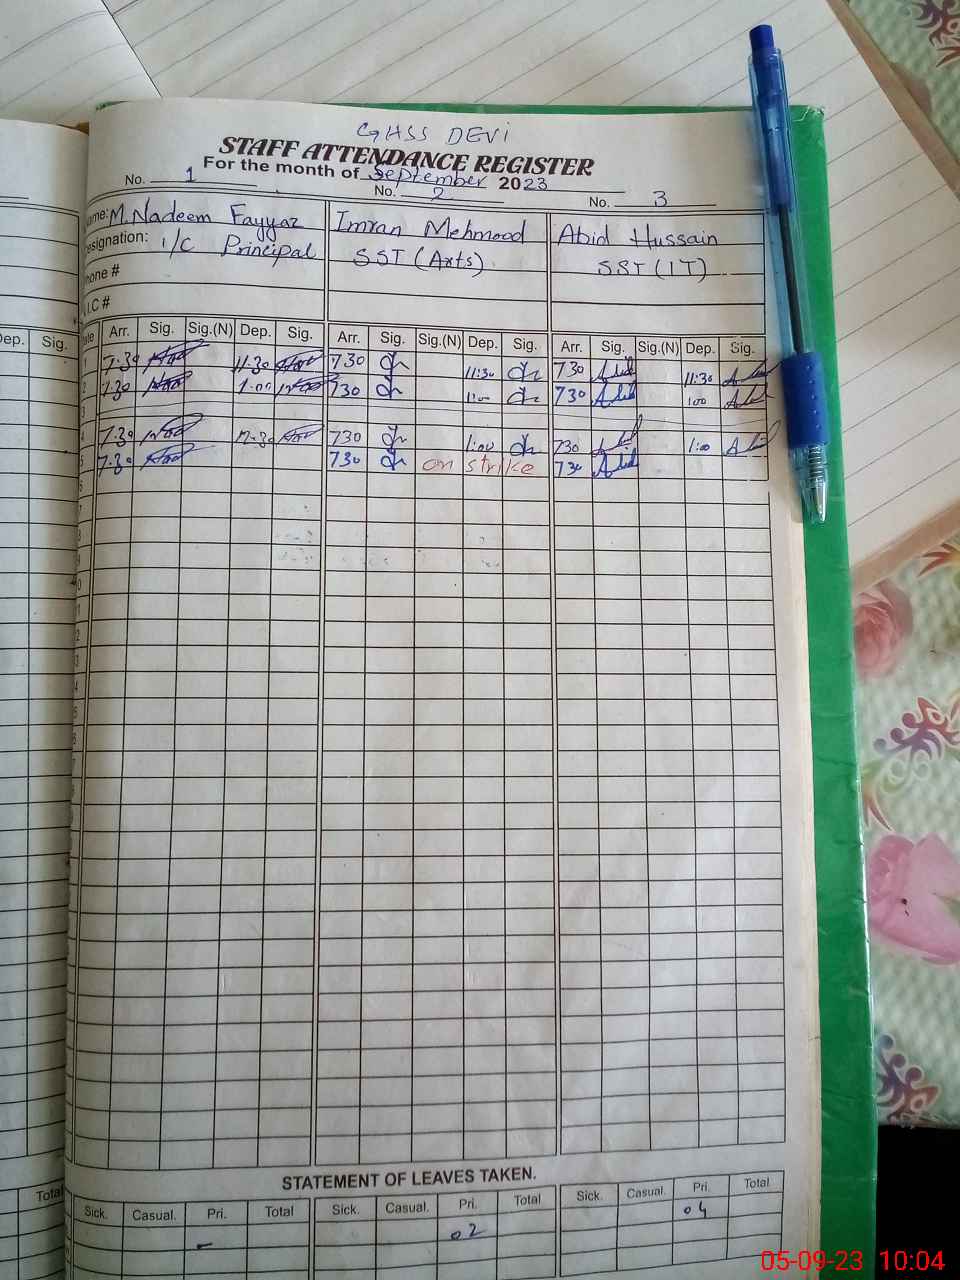 GHSS DEVi
STAFF ATTENDANCE REGISTER
For the month of September 2023
No. 1 No. 2 No. 3
ame: M. Nadeem Fayyaz Imran Mehmood Abid Hussain
esignation: I/C Principal SST (Arts) SST (IT)
hone #
.I.C #
Dep. Sig. ate Arr. Sig. Sig.(N) Dep. Sig. Arr. Sig. Sig.(N) Dep. Sig. Arr. Sig. Sig.(N) Dep. Sig.
1 7:30 11:30 730 11:30 730 Abid 11:30
2 7:30 1:00 730 1:00 730 Abid 1:00 Abid
3
4 7:30 12:30 730 1:00 730 Abid 1:00 Abid
5 7:30 730 on strike 730 Abid
6
7
8
9
0
1
2
3
4
5
6
7
STATEMENT OF LEAVES TAKEN.
Total Sick. Casual. Pri. Total Sick. Casual. Pri. Total Sick. Casual. Pri. Total
- 02 04
05-09-23 10:04